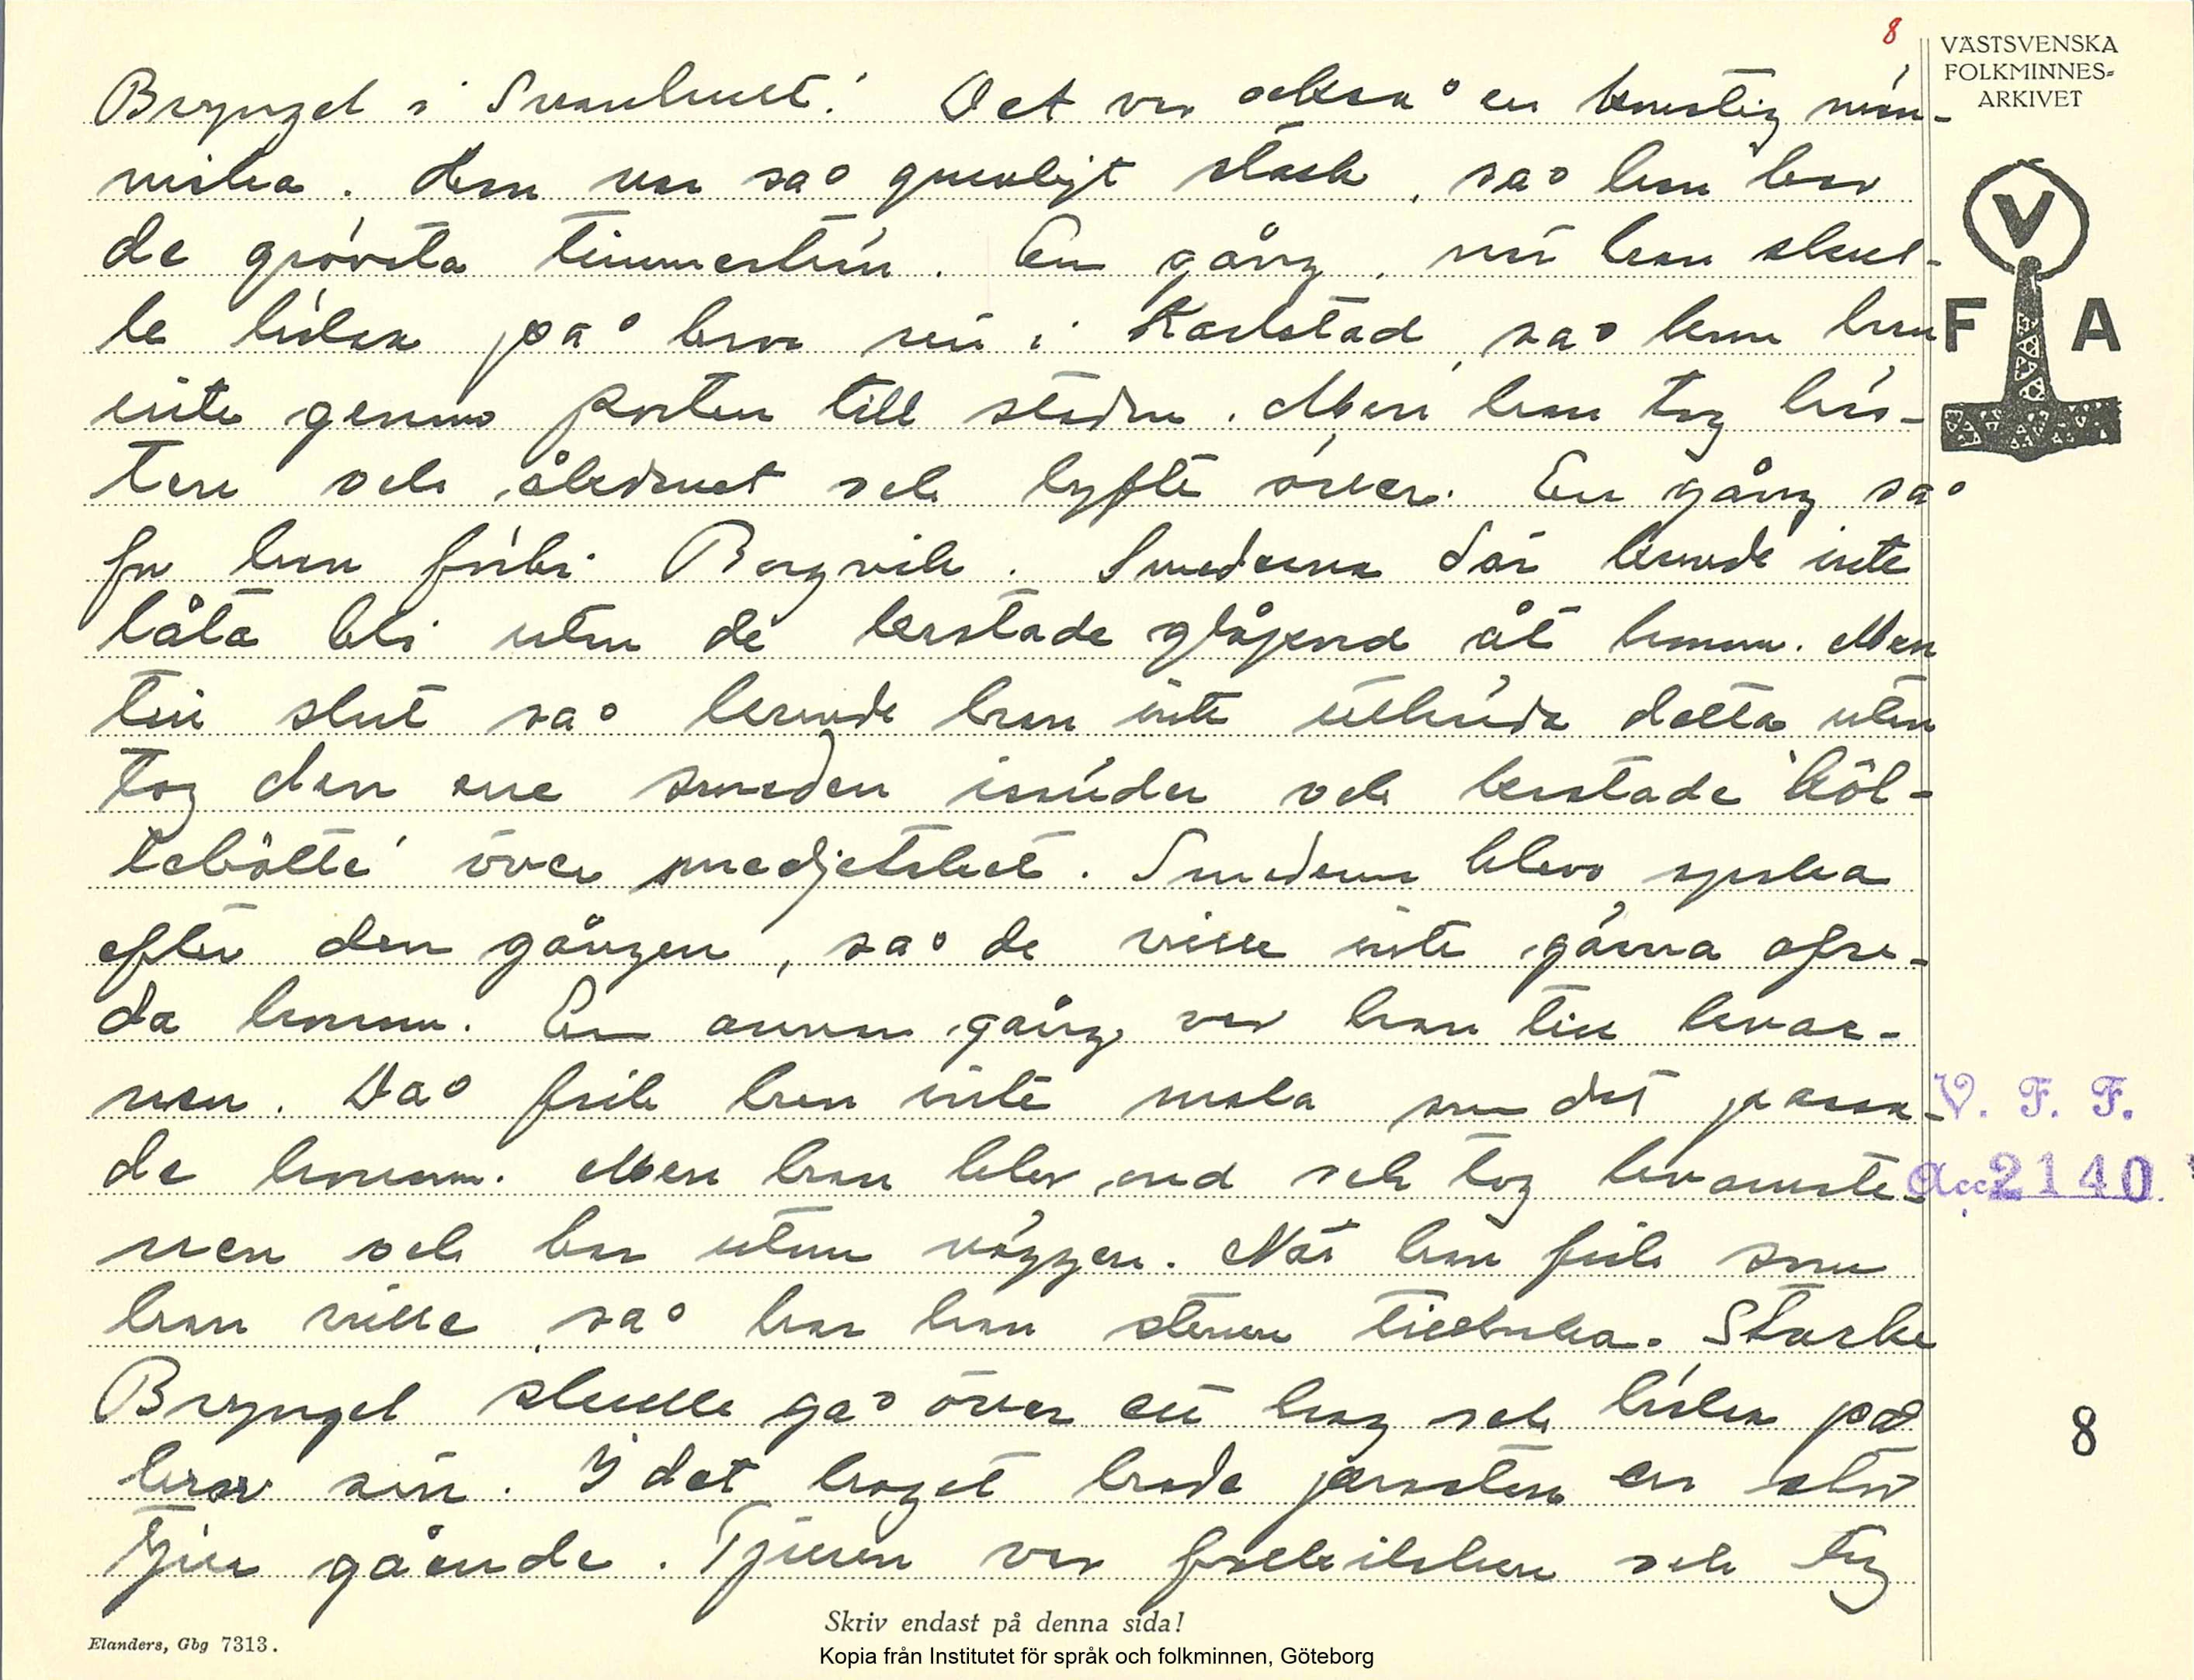 8
VÄSTSVENSKA
FOLKMINNES-
ARKIVET
V
F A
Bryngel i Svanhult! Det var också en konstig män-
niska. Han var så gruvligt stark, så han bar
de grövsta timmerträn. En gång, när han skul-
le hälsa på bror sin i Karlstad, så kom han
inte genom porten till staden. Men han tog häs-
ten och åkdonet och lyfte över. En gång så
for han förbi Borgvik. Smederna där kunde inte
låta bli utan de kastade glåpord åt honom. Men
till slut så kunde han inte uthärda detta utan
tog den ene smeden isänder och kastade 'köl-
lebötte' över smedjetaket. Smederna blevo spaka
efter den gången, så de ville inte gärna ofre-
da honom. En annan gång var han till kvar-
nen. Då fick han inte mala som det passa-
de honom. Men han blev ond och tog kvarnste-
nen och bar utom väggen. När han fick som
han ville så bar han stenen tillbaka. Starke
Bryngel skulle gå över ett hag och hälsa på
bror sin. I det haget hade prosten en stor
tjur gående. Tjuren var folkilsken och tog
V. F. F.
Acc. 2140
8
Skriv endast på denna sida!
Elanders, Gbg 7313.
Kopia från Institutet för språk och folkminnen, Göteborg